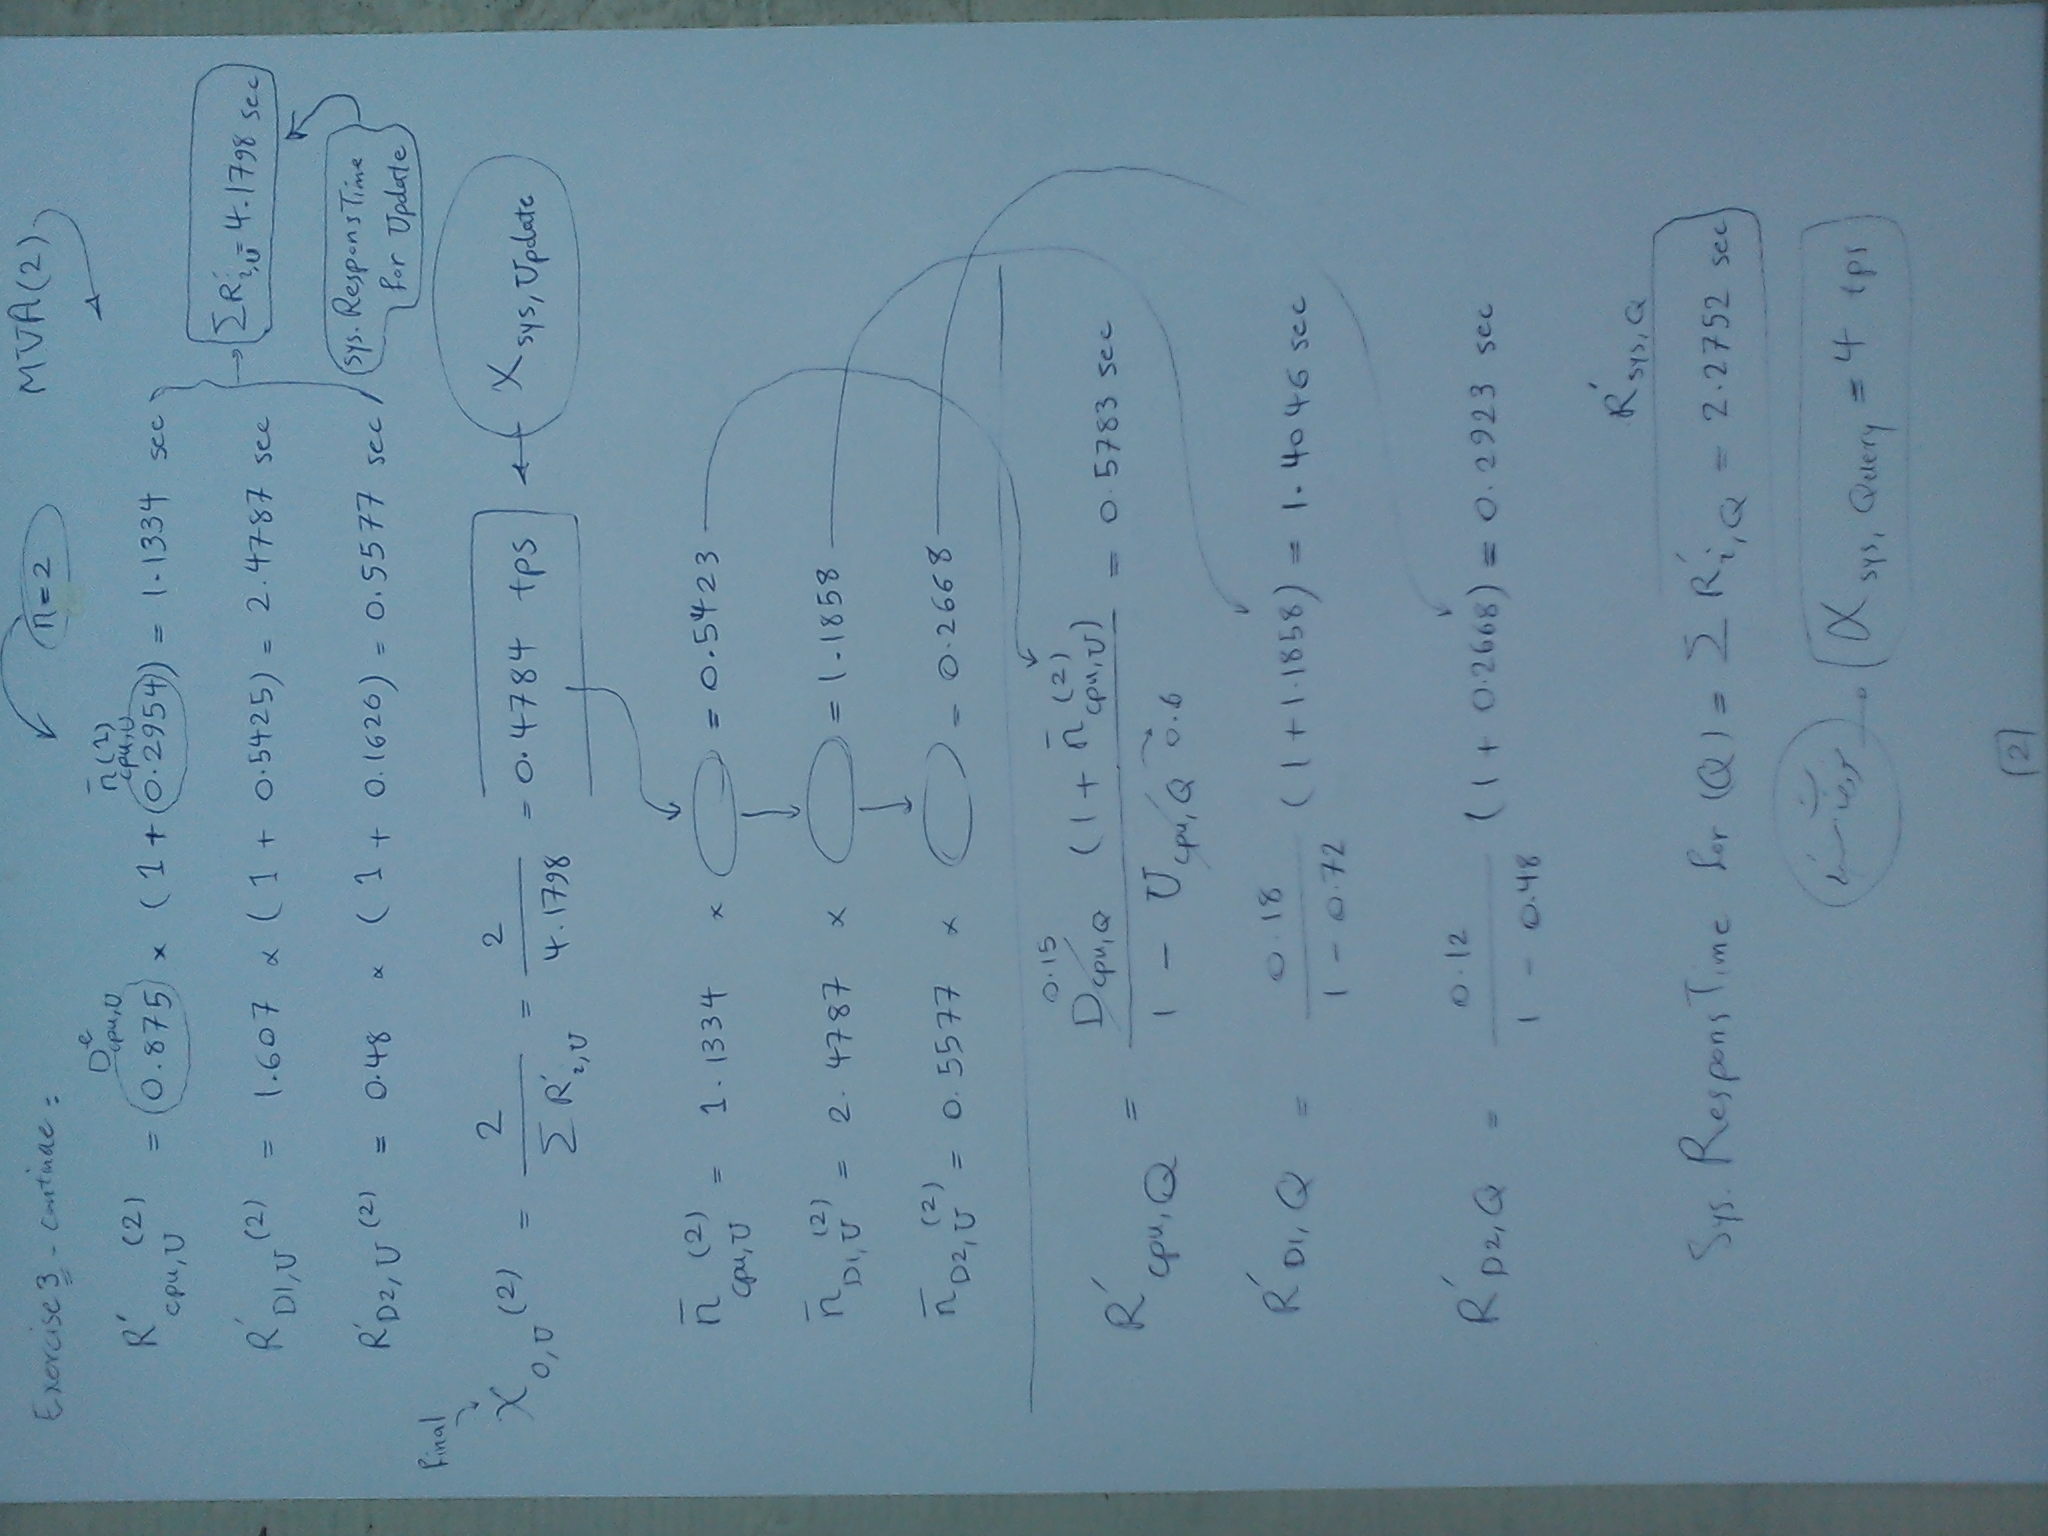 Exercise 3 - continue :
n = 2
MVA(2)
D^e cpu,U
n̄(1) cpu,U
R'cpu,U (2) = 0.875 × (1 + 0.2954) = 1.1334 sec
R'D1,U (2) = 1.607 × (1 + 0.5425) = 2.4787 sec
ΣR'i,U = 4.1798 sec
R'D2,U (2) = 0.48 × (1 + 0.1620) = 0.5577 sec
sys. Respons Time
for Update
Final
X0,U (2) = 2 / ΣR'i,U = 2 / 4.1798 = 0.4784 tps
Xsys, Update
n̄cpu,U (2) = 1.1334 × = 0.5423
n̄D1,U (2) = 2.4787 × = 1.1858
n̄D2,U (2) = 0.5577 × = 0.2668
0.15
R'cpu,Q = Dcpu,Q (1 + n̄cpu,U (2)) / 1 - Ucpu,Q 0.6 = 0.5783 sec
R'D1,Q = 0.18 / 1 - 0.72 (1 + 1.1858) = 1.4046 sec
R'D2,Q = 0.12 / 1 - 0.48 (1 + 0.2668) = 0.2923 sec
R'sys,Q
Sys. Respons Time for (Q) = ΣR'i,Q = 2.2752 sec
Xsys, Query = 4 tps
[2]